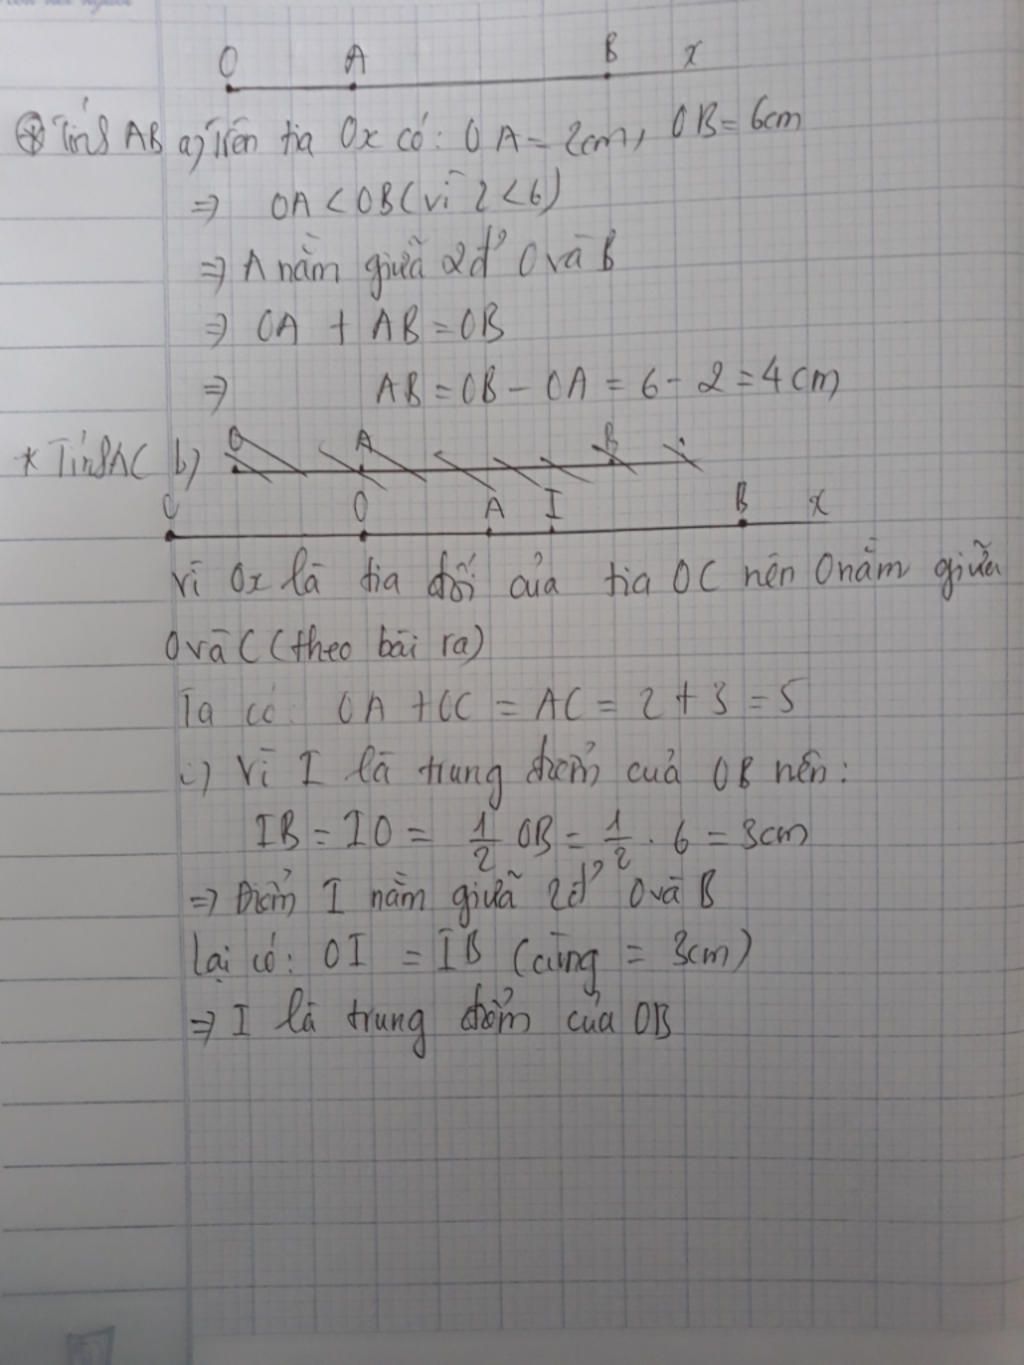 O A B x
* Tính AB a) Trên tia Ox có: OA = 2cm, OB = 6cm
=> OA < OB (vì 2 < 6)
=> A nằm giữa 2đ' O và B
=> OA + AB = OB
=> AB = OB - OA = 6 - 2 = 4 cm
* Tính AC b) O A B
C O A I B x
Vì Ox là tia đối của tia OC nên O nằm giữa
O và C (theo bài ra)
Ta có: OA + OC = AC = 2 + 3 = 5
c) Vì I là trung điểm của OB nên:
IB = IO = 1/2 OB = 1/2 . 6 = 3cm
=> Điểm I nằm giữa 2đ' O và B
Lại có: OI = IB (cùng = 3cm)
=> I là trung điểm của OB